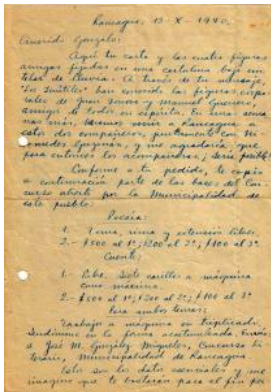 Rancagua, 13-X-1940.
Querido Gonzalo:
Aquí tu carta y las cuatro figuras
amigas fijadas en una cartulina bajo un
telar de lluvia. A través de tu mensaje,
"Los Inútiles" han conocido las figuras corpo-
rales de Juan Donoso y Manuel Guerrero,
amigos de todos en espíritu. En unas sema-
nas más, haremos venir a Rancagua a
estos dos compañeros, juntamente con Ni-
comedes Guzmán, y me agradaría que
para entonces los acompañaras ¿Sería posible?
Conforme a tu pedido, te copio
a continuación parte de las bases del Con-
curso abierto por la Municipalidad de
este pueblo:
Poesía:
1.- Tema, rima y extensión libre.
2.- $500 al 1º; $200 al 2º; $100 al 3º
Cuento:
1.- Libre. Siete carillas a máquina
como máximo.
2.- $500 al 1º; $200 al 2º; $100 al 3º
Para ambos temas:
Trabajo a máquina en triplicado,
seudónimo en la forma acostumbrada. Enviar
a José M. González Miquelos, Concurso Li-
terario, Municipalidad de Rancagua.
Estos son los datos esenciales y me
imagino que te bastarán para el fin per-